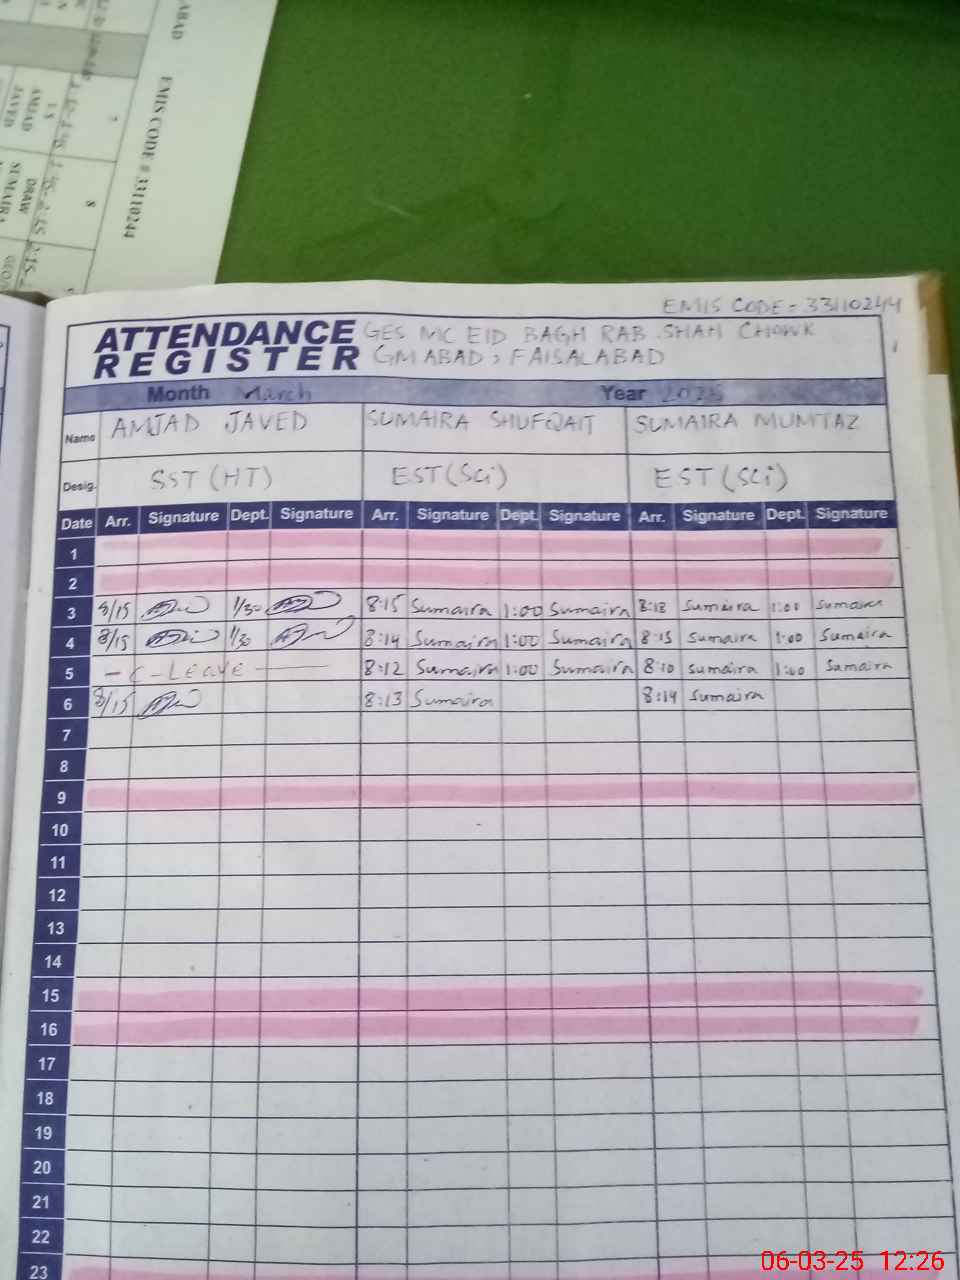 ABAD EMIS CODE # 33110244
7
I.S
AMJAD
JAVED
8
DRAW
SUMAIRA
EMIS CODE = 33110244
ATTENDANCE GES MC EID BAGH RAB SHAH CHOWK
REGISTER GM ABAD, FAISALABAD
Month March Year 2025
Name AMJAD JAVED SUMAIRA SHUFQAIT SUMAIRA MUMTAZ
Desig. SST (HT) EST (Sci) EST (Sci)
Date Arr. Signature Dept. Signature Arr. Signature Dept. Signature Arr. Signature Dept. Signature
1
2
3 8/15 1/30 8:15 Sumaira 1:00 Sumaira 8:18 Sumaira 1:00 Sumaira
4 8/15 1/30 8:14 Sumaira 1:00 Sumaira 8:15 Sumaira 1:00 Sumaira
5 - C - Leave 8:12 Sumaira 1:00 Sumaira 8:10 Sumaira 1:00 Sumaira
6 8/15 8:13 Sumaira 8:14 Sumaira
7
8
9
10
11
12
13
14
15
16
17
18
19
20
21
22
23
06-03-25 12:26